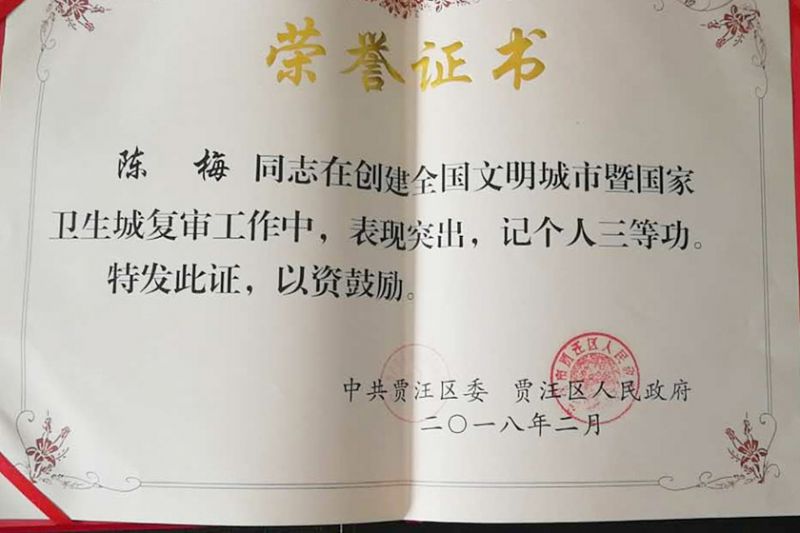 荣誉证书
陈 梅 同志在创建全国文明城市暨国家
卫生城复审工作中，表现突出，记个人三等功。
特发此证，以资鼓励。
中共贾汪区委 贾汪区人民政府
二〇一八年二月